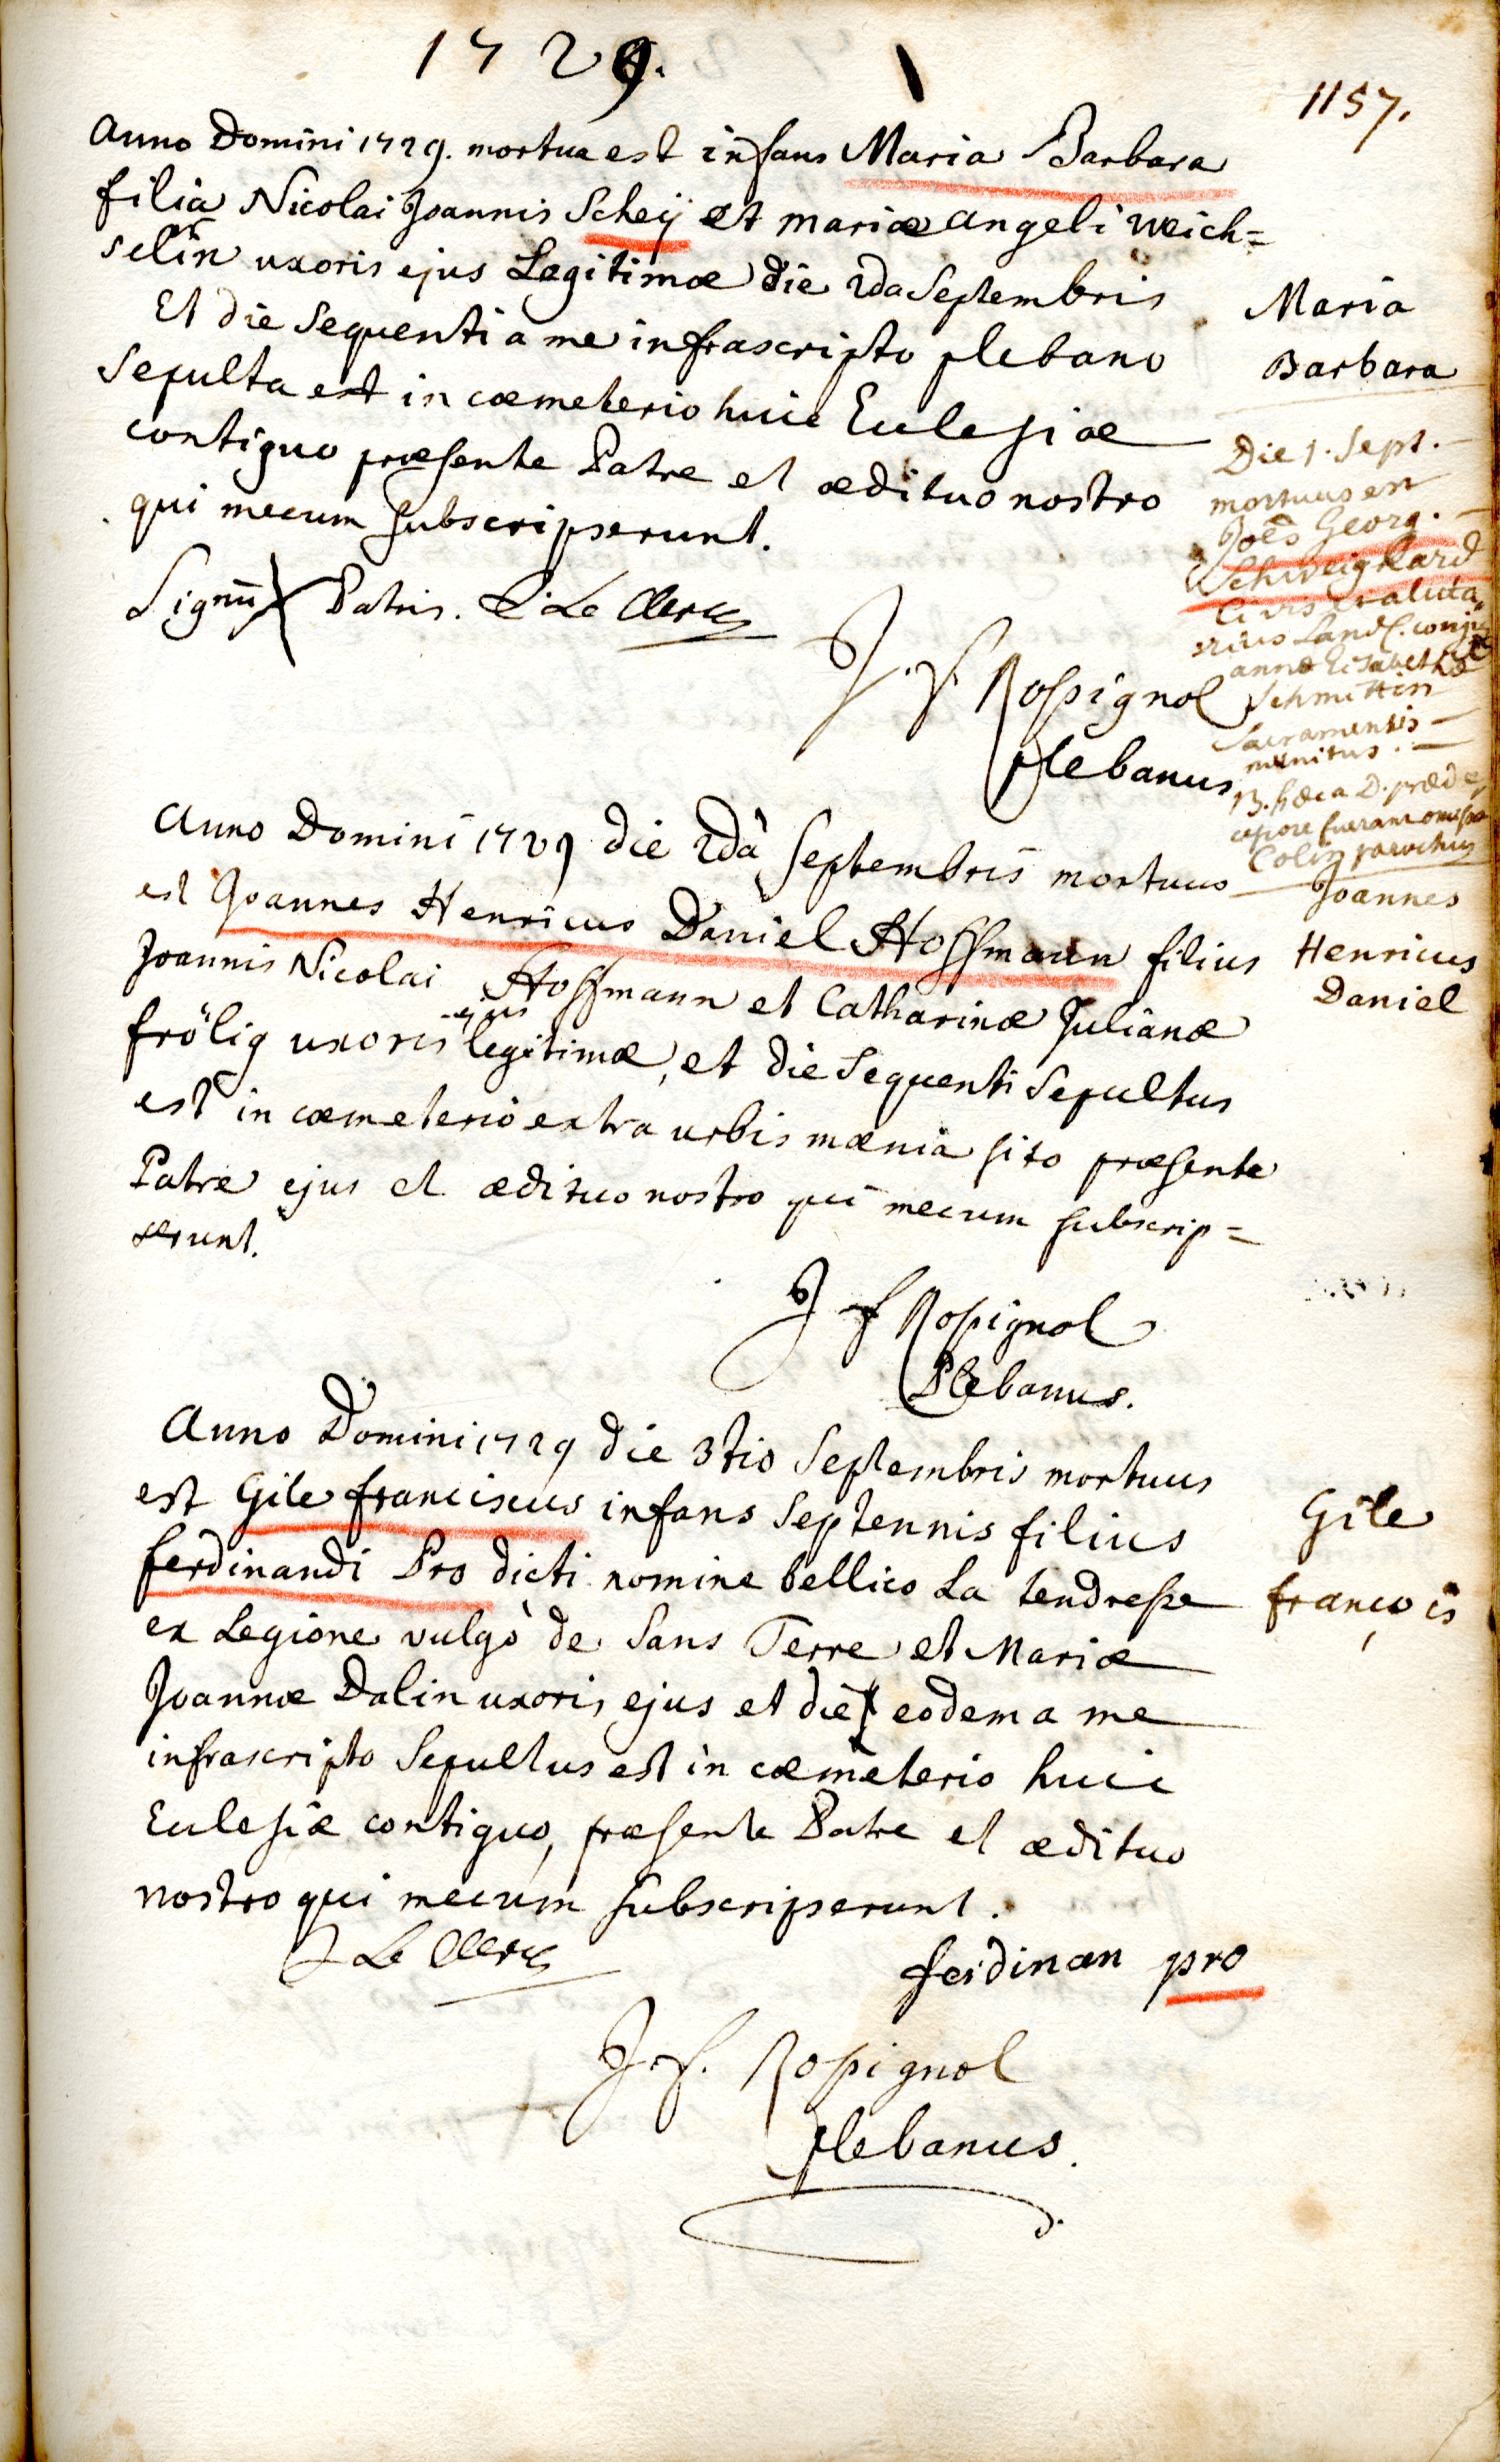 1729.
1157.
Anno Domini 1729. mortua est infans Maria Barbara
filia Nicolai Joannis Scheÿ et mariæ angeli weich=
selin uxoris ejus Legitimæ die 2da Septembris
Et die Sequenti a me infrascripto plebano
Sepulta est in cæmeterio huic Ecclesiæ
contiguo præsente Patre et ædituo nostro
qui mecum subscripserunt.
Signũ X Patris. Le Clerc
J. F. Rossignol
plebanus
Maria
Barbara
Die 1. Sept.
mortuus est
Joẽs Georg.
Schweigkard
Civis et aluta
rius Land. conju
annæ Elisabethæ
Schmittin
Sacramentis
munitus.
B. hæc a D. præde
cessore fuerant omissa
Colin parochus
Anno Domini 1729 die 2dà Septembris mortuus
est Joannes Henricus Daniel Hoffmann filius
Joannis Nicolai Hoffmann et Catharinæ Julianæ
frölig uxoris ejus legitimæ, et die Sequenti Sepultus
est in cæmeterio extra urbis mænia sito præsente
Patre ejus et ædituo nostro qui mecum subscrip=
serunt.
J F Rossignol
Plebanus.
Joannes
Henricus
Daniel
Anno Domini 1729 die 3tio Septembris mortuus
est Gile franciscus infans Septennis filius
ferdinandi Pro dicti nomine bellico La tendresse
ex Legione vulgò de Sans Terre et Mariæ
Joannæ Dalin uxoris ejus et die eodem a me
infrascripto Sepultus est in cæmeterio huic
Ecclesiæ contiguo, præsente Patre et ædituo
nostro qui mecum subscripserunt.
Le Clerc
ferdinan pro
J. F. Rossignol
plebanus.
Gile
françois